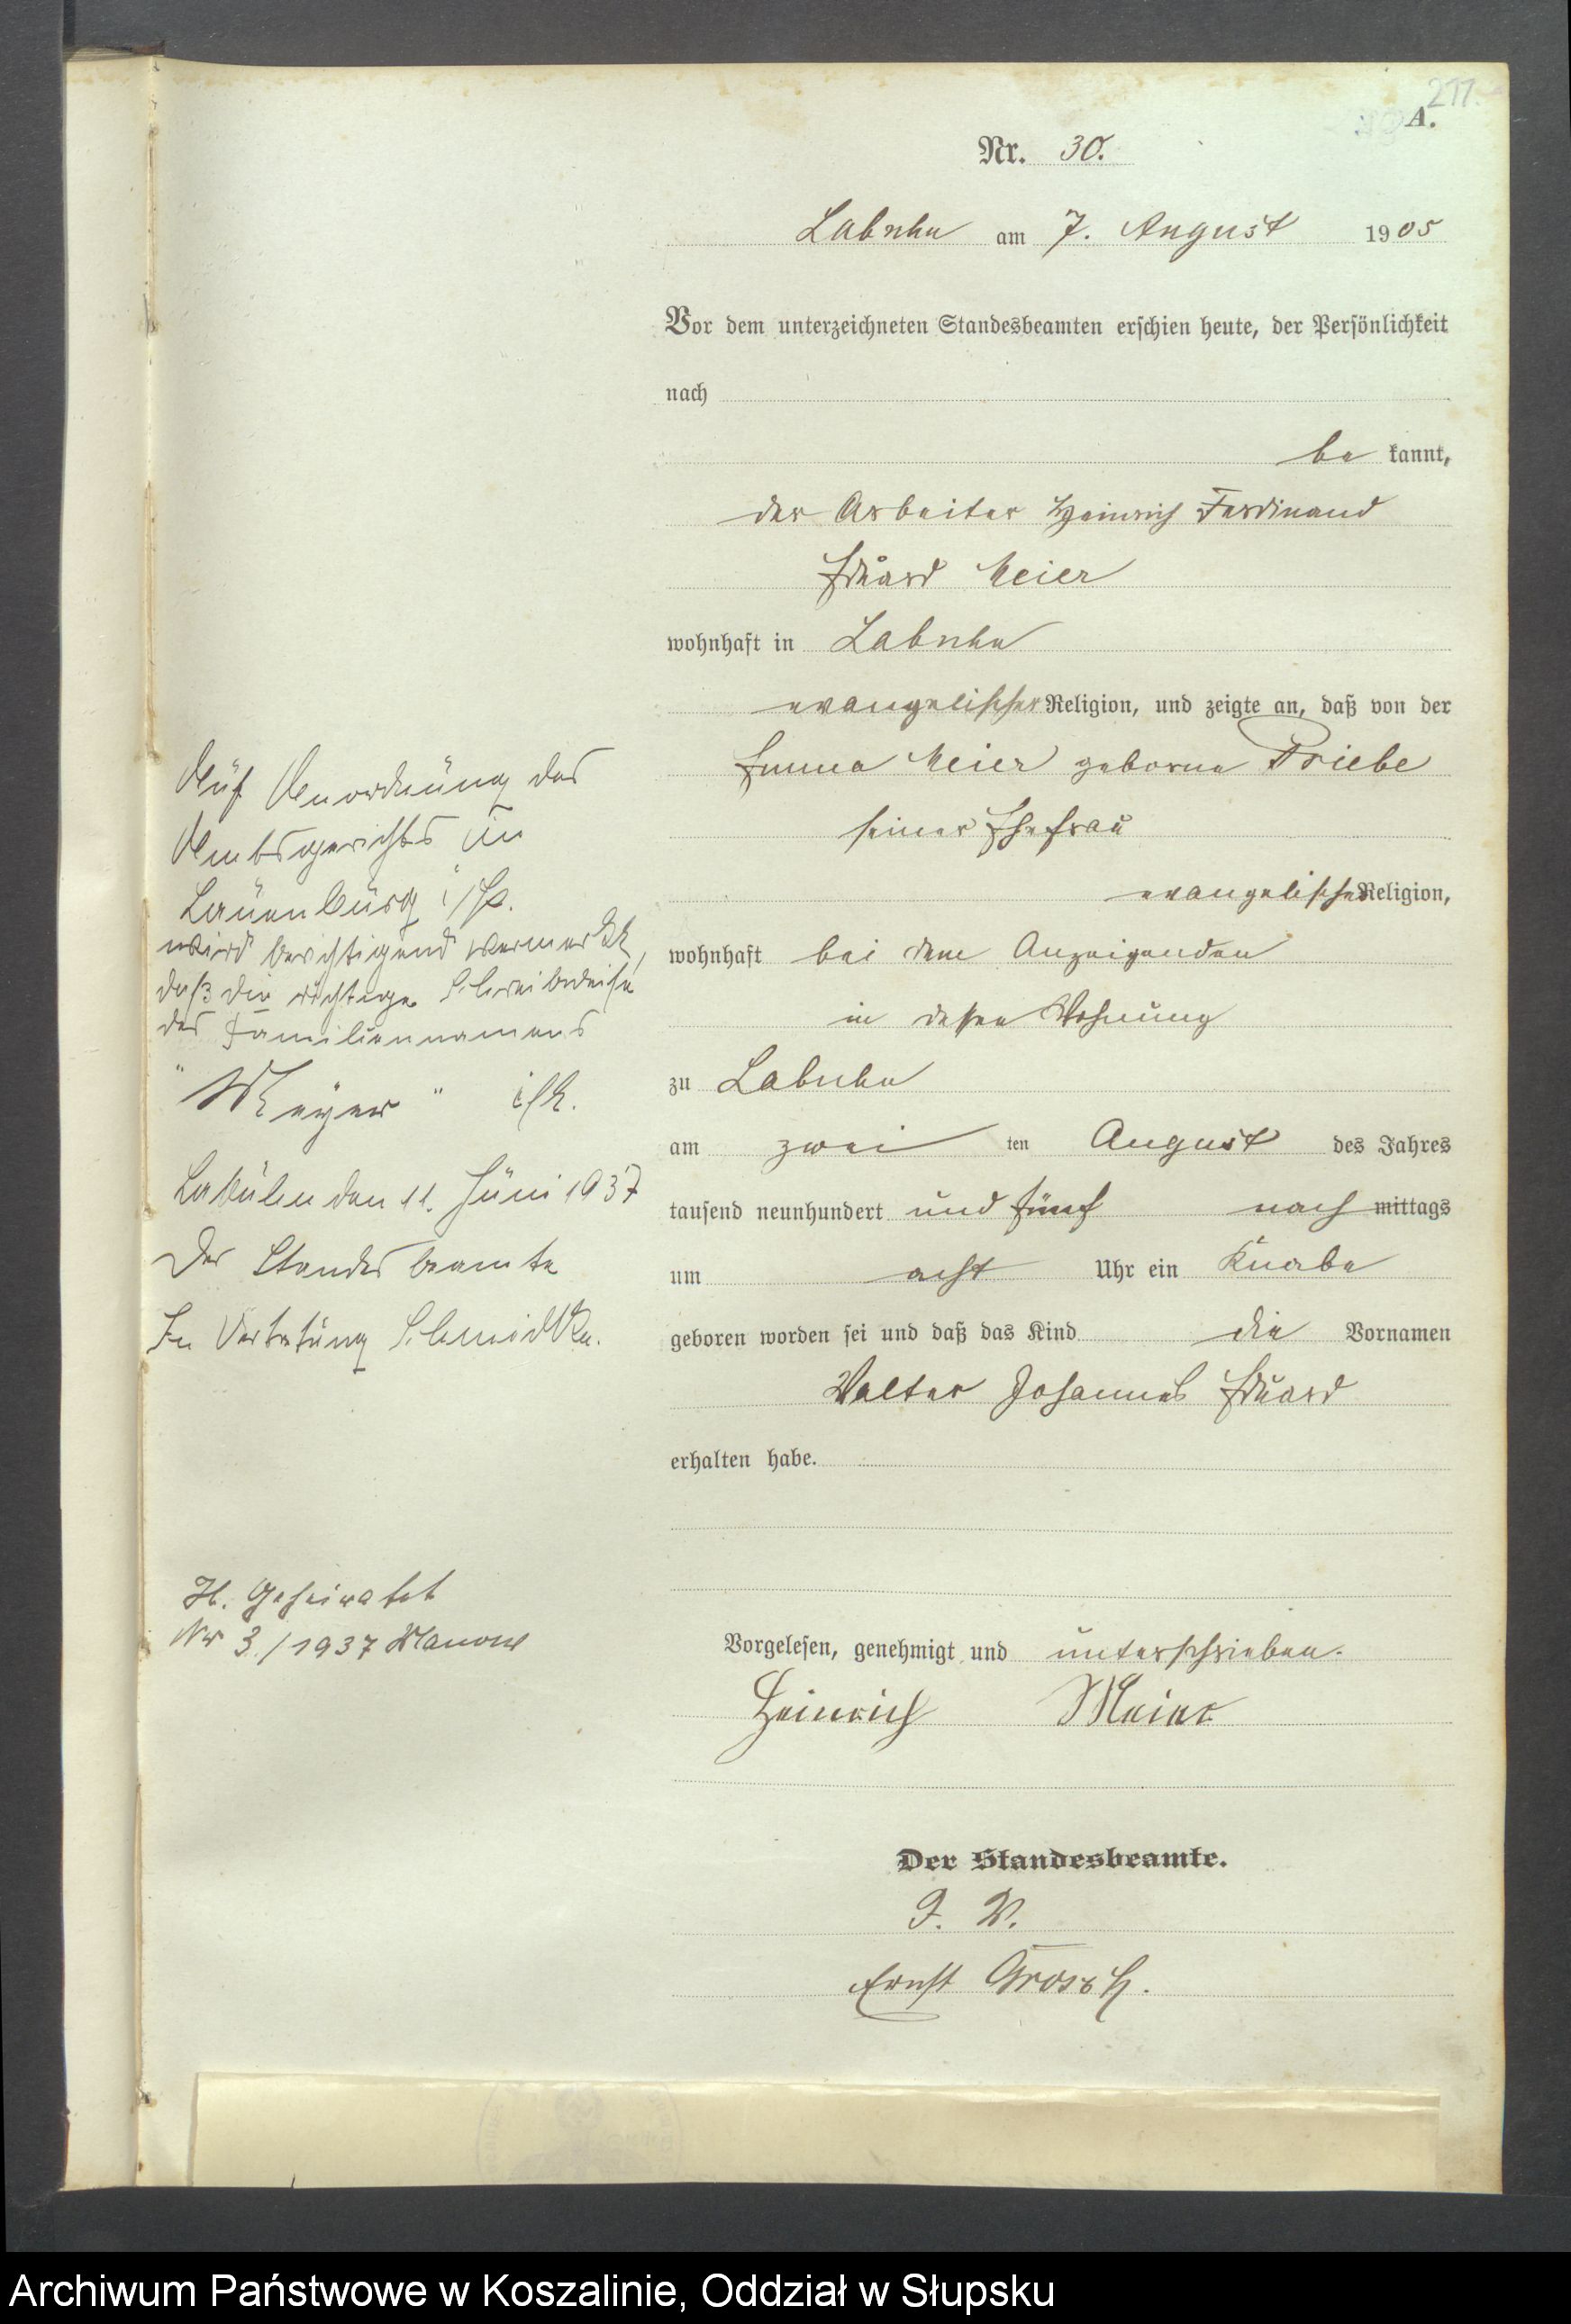 211.
A.
Nr. 30.
Labuhn am 7. August 1905
Vor dem unterzeichneten Standesbeamten erschien heute, der Persönlichkeit
nach
be kannt,
der Arbeiter Heinrich Ferdinand
Eduard Meier
wohnhaft in Labuhn
evangelischer Religion, und zeigte an, daß von der
Emma Meier geborne Priebe
seiner Ehefrau
evangelischer Religion,
wohnhaft bei dem Anzeigenden
in dessen Wohnung
zu Labuhn
am zwei ten August des Jahres
tausend neunhundert und fünf nach mittags
um acht Uhr ein Knabe
geboren worden sei und daß das Kind die Vornamen
Walter Johannes Eduard
erhalten habe.
Vorgelesen, genehmigt und unterschrieben.
Heinrich Meier
Der Standesbeamte.
I. V.
Ernst Grosch.
Auf Anordnung des
Amtsgerichts in
Lauenburg i/P.
wird berichtigend vermerkt,
daß die richtige Schreibweise
des Familiennamens
"Meyer" ist.
Labuhn den 11. Juni 1937
Der Standesbeamte
In Vertretung Schmidtke.
H. Geheiratet
Nr 3./1937
Archiwum Państwowe w Koszalinie, Oddział w Słupsku